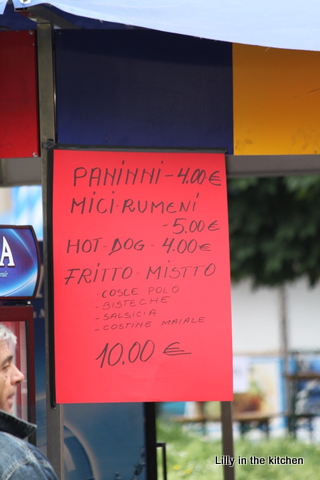 PANINNI - 4.00 €
MICI-RUMENI
- 5.00 €
HOT-DOG - 4.00 €
FRITTO MISTTO
- COSCE POLO
- BISTECHE
- SALSICIA
- COSTINE MAIALE
10.00 €
A
Lilly in the kitchen